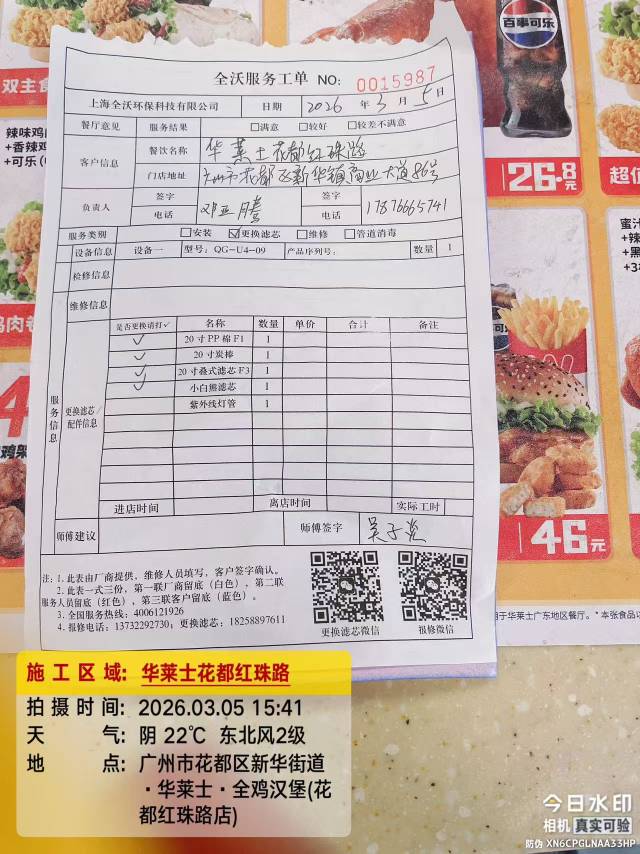 百事可乐
双主食
辣味鸡
+香辣鸡
+可乐
26.8元
超值
46元
鸡肉卷
鸡架
全沃服务工单 NO: 0015987
上海全沃环保科技有限公司 日期 2026 年 3 月 5 日
餐厅意见 服务结果 □满意 □较好 □较差不满意
客户信息 餐饮名称 华莱士花都红珠路
门店地址 广州市花都区新华镇商业大道86号
负责人 签字 电话 邓亚腾 签字 电话 17876665741
服务类别 □安装 ☑更换滤芯 □维修 □管道消毒
设备信息 设备一 型号: QG-U4-09 产品序列号: 数量 1
检修信息
维修信息
服务信息
更换滤芯/配件信息
是否更换请打✓ 名称 数量 单价 合计 备注
✓ 20寸PP棉F1 1
✓ 20寸炭棒 1
✓ 20寸叠式滤芯F3 1
✓ 小白熊滤芯 1
紫外线灯管 1
进店时间 离店时间 实际工时
师傅建议 师傅签字
注: 1.此表由厂商提供,维修人员填写,客户签字确认。
2.此表一式三份,第一联厂商留底(白色),第二联
服务人员留底(红色),第三联客户留底(蓝色)。
3.全国服务热线: 4006121926
4.报修电话: 13732292730; 更换滤芯: 18258897611
更换滤芯微信 报修微信
用于华莱士广东地区餐厅。*本张食品以
施工区域: 华莱士花都红珠路
拍摄时间: 2026.03.05 15:41
天 气: 阴 22℃ 东北风2级
地 点: 广州市花都区新华街道
·华莱士·全鸡汉堡(花
都红珠路店)
今日水印
相机 真实可验
防伪 XN6CPGLNAA33HP